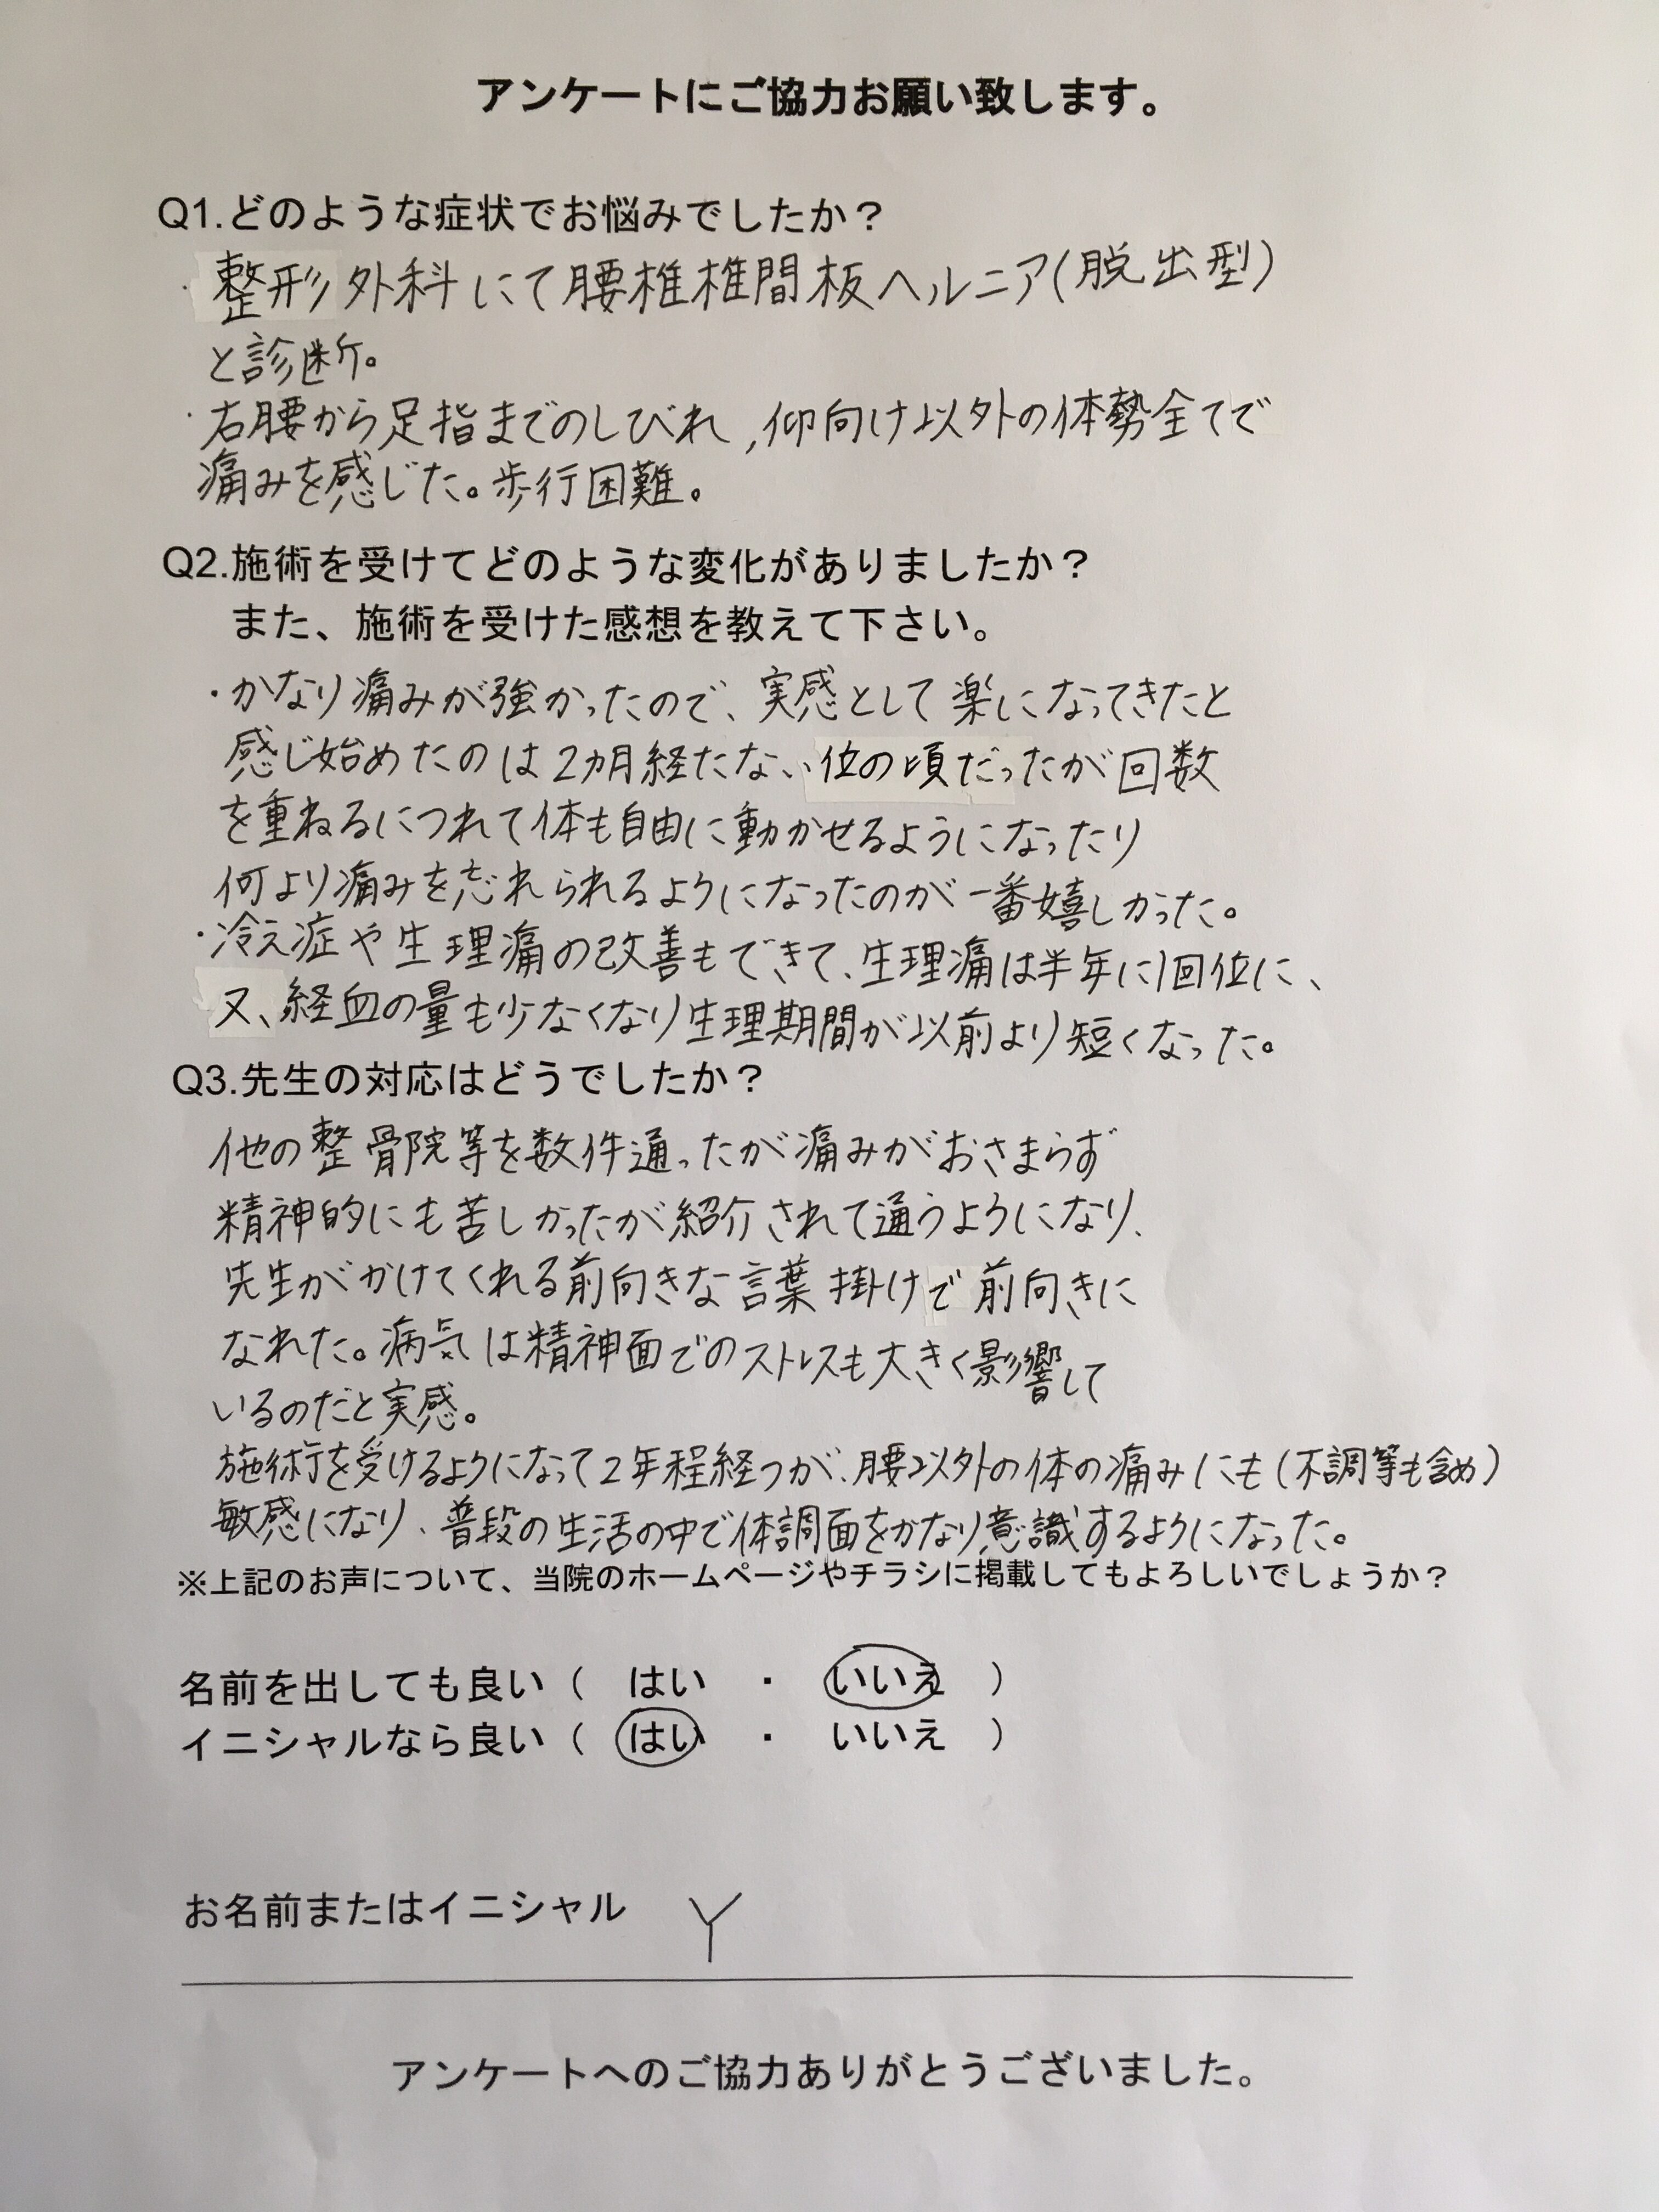 アンケートにご協力お願い致します。
Q1.どのような症状でお悩みでしたか？
・整形外科にて腰椎椎間板ヘルニア(脱出型)
と診断。
・右腰から足指までのしびれ,仰向け以外の体勢全てで
痛みを感じた。歩行困難。
Q2.施術を受けてどのような変化がありましたか？
また、施術を受けた感想を教えて下さい。
・かなり痛みが強かったので、実感として楽になってきたと
感じ始めたのは2カ月経たない位の頃だったが回数
を重ねるにつれて体も自由に動かせるようになったり
何より痛みを忘れられるようになったのが一番嬉しかった。
・冷え症や生理痛の改善もできて、生理痛は半年に1回位に、
又、経血の量も少なくなり生理期間が以前より短くなった。
Q3.先生の対応はどうでしたか？
他の整骨院等を数件通ったが痛みがおさまらず
精神的にも苦しかったが紹介されて通うようになり、
先生がかけてくれる前向きな言葉掛けで前向きに
なれた。病気は精神面でのストレスも大きく影響して
いるのだと実感。
施術を受けるようになって2年程経つが、腰以外の体の痛みにも(不調等も含め)
敏感になり、普段の生活の中で体調面をかなり意識するようになった。
※上記のお声について、当院のホームページやチラシに掲載してもよろしいでしょうか？
名前を出しても良い（ はい ・ いいえ ）
イニシャルなら良い（ はい ・ いいえ ）
お名前またはイニシャル Y
アンケートへのご協力ありがとうございました。